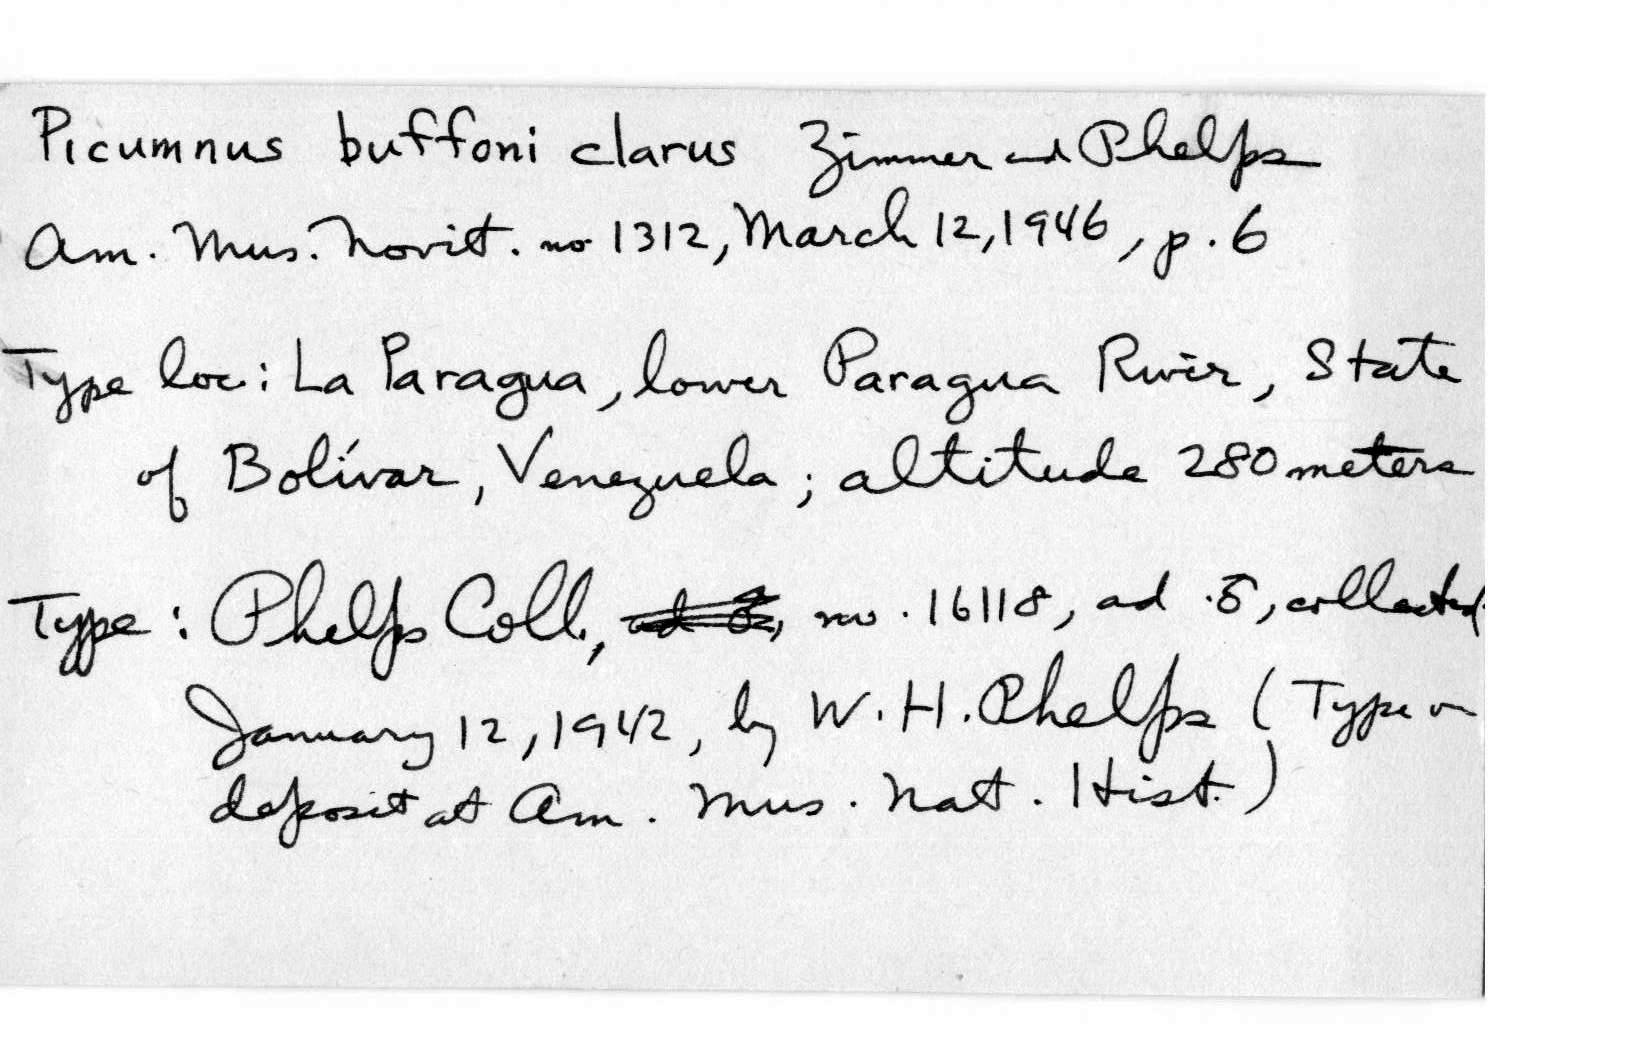 Picumnus buffoni clarus Zimmer and Phelps
Am. Mus. Novit. no 1312, March 12, 1946, p. 6
Type loc: La Paragua, lower Paragua River, State
of Bolívar, Venezuela; altitude 280 meters
Type: Phelps Coll., no. 16118, ad. ♂, collected
January 12, 1942, by W. H. Phelps (Type on
deposit at Am. Mus. Nat. Hist.)